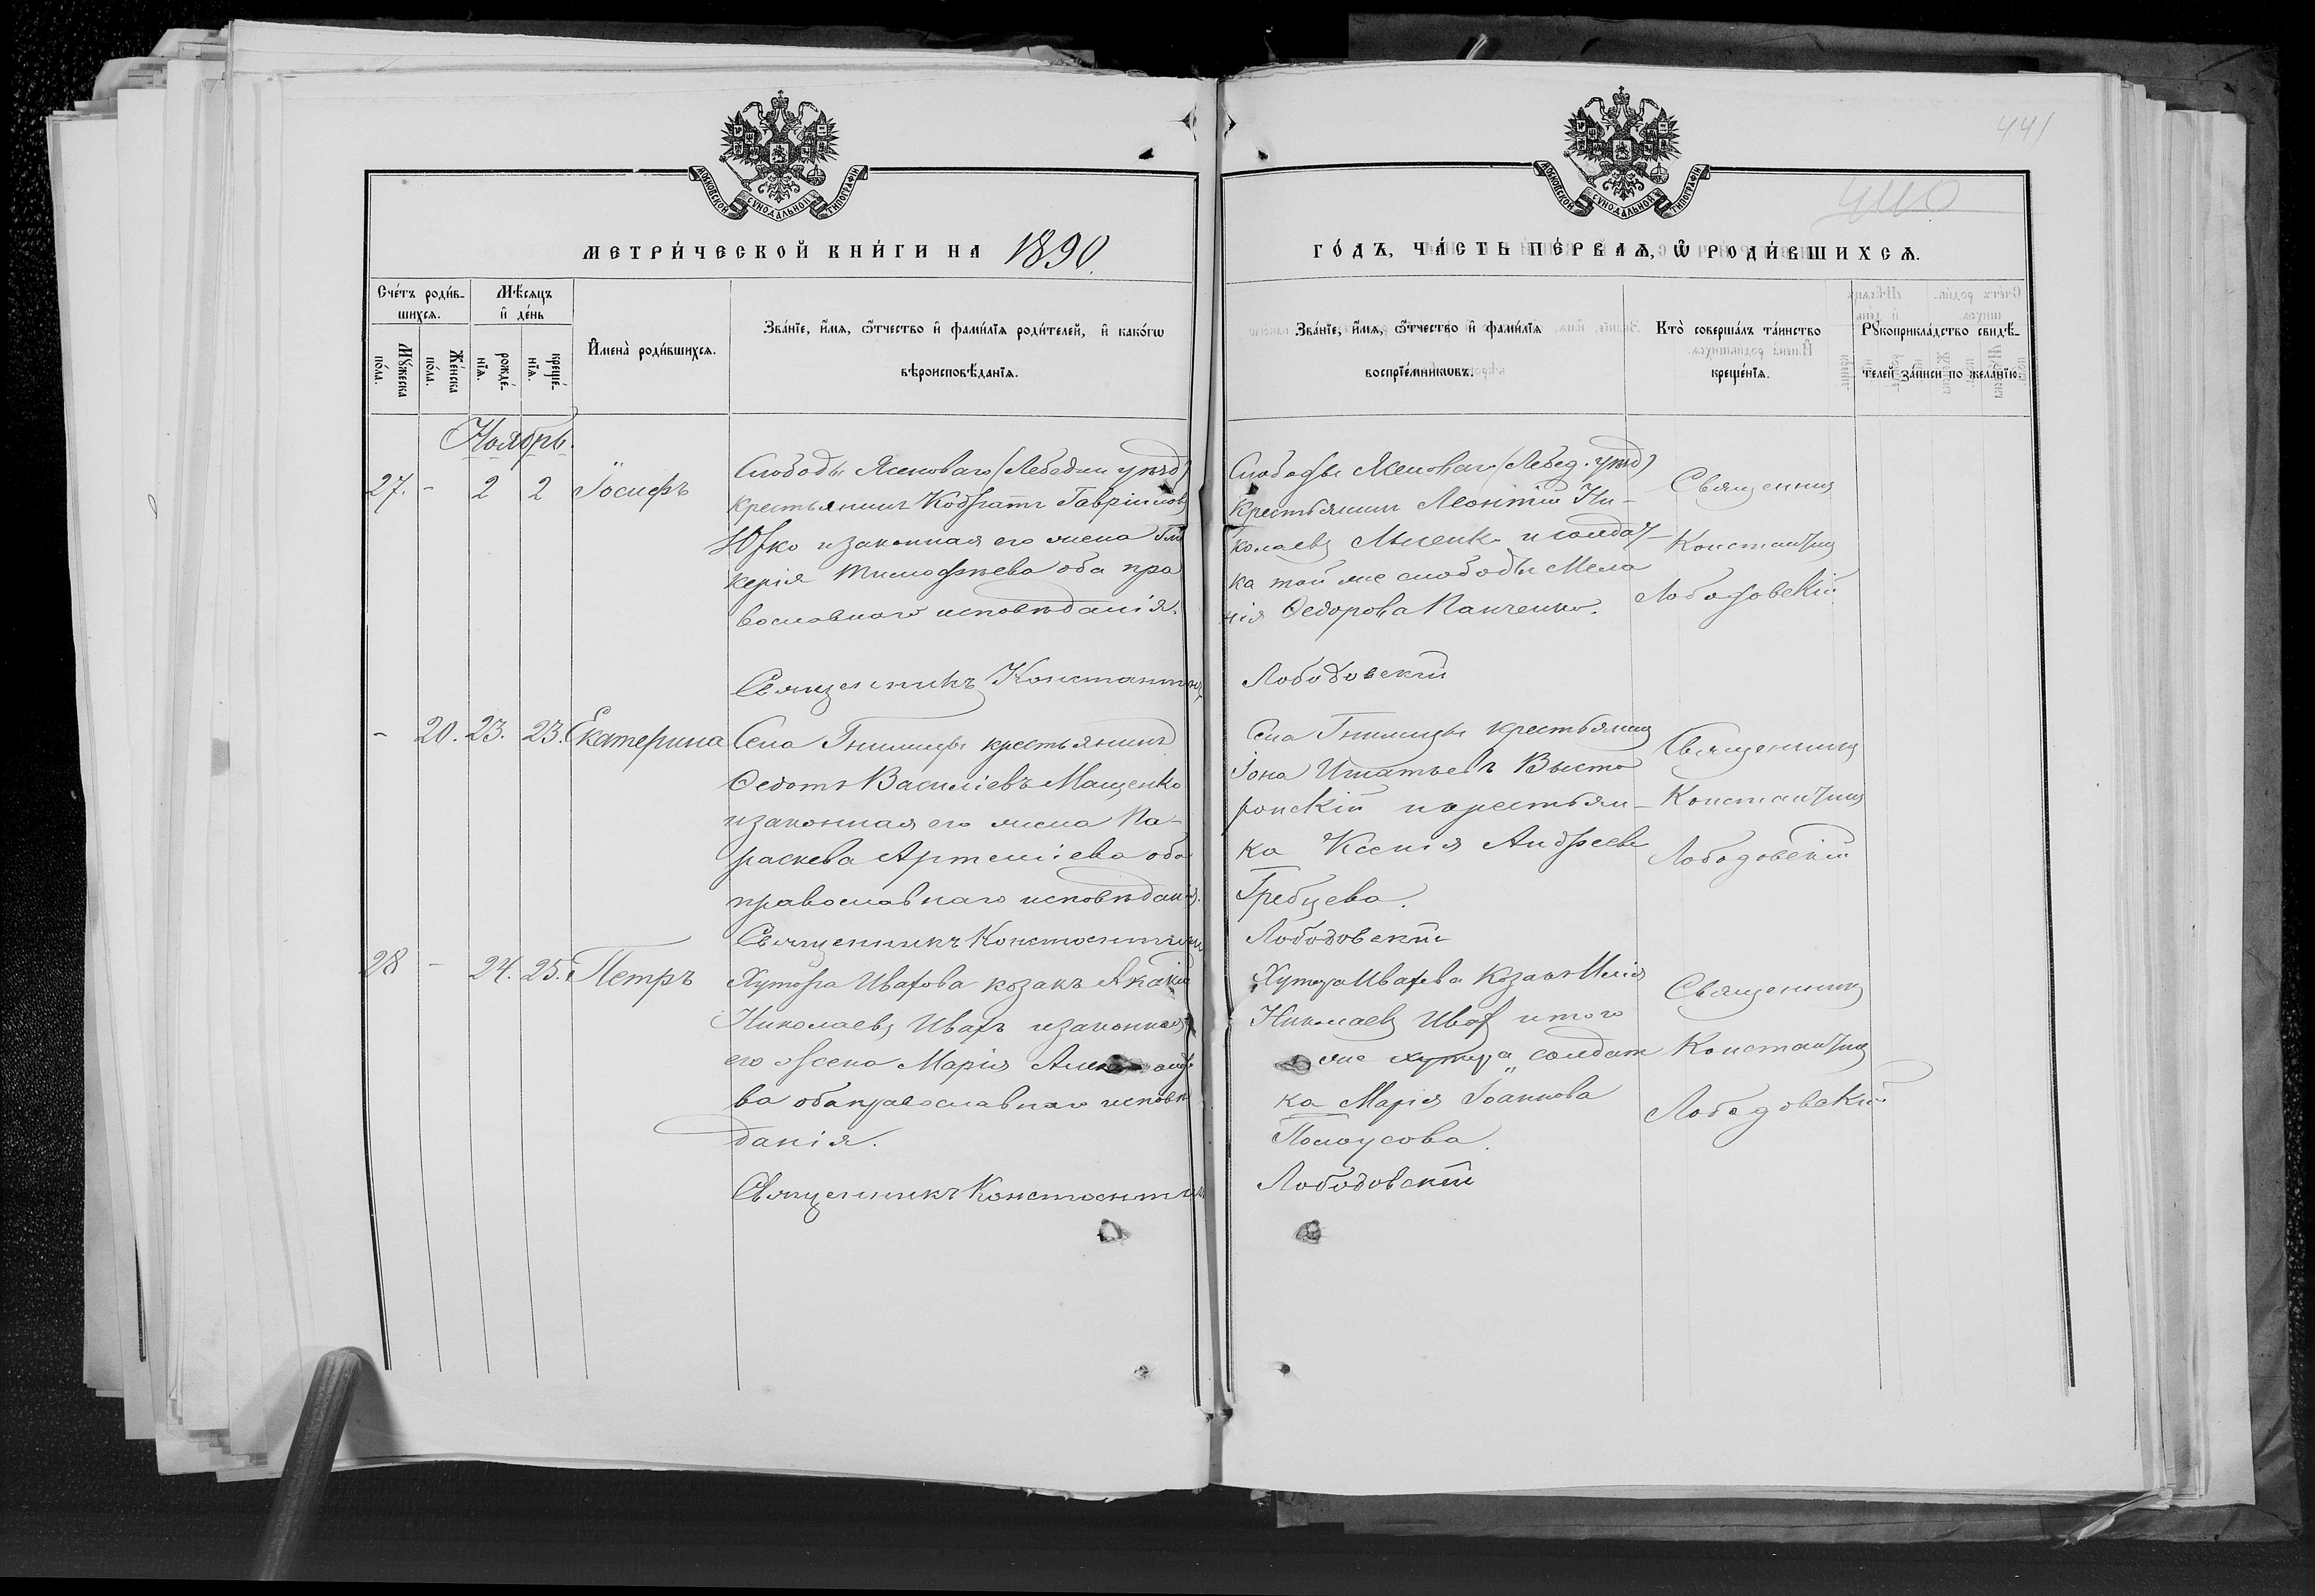 441
440
МОСКОВСКОЙ СѴНОДАЛЬНОЙ ТИПОГРАФІИ
МОСКОВСКОЙ СѴНОДАЛЬНОЙ ТИПОГРАФІИ
МЕТРИ́ЧЕСКОЙ КНИ́ГИ НА 1890.
ГО́ДЪ, ЧА́СТЬ ПЕ́РВАѦ, Ѽ РОДИ́ВШИХСѦ.
Сче́тъ роди́в-
шихсѧ.
Мꙋ́жеска
по́ла.
Же́нска
по́ла.
Мѣ́сѧцъ
и҆ де́нь
рожде́-
нїѧ.
креще́-
нїѧ.
И҆мена̀ роди́вшихсѧ.
Зва́нїе, и҆́мѧ, ѻ҆́тчество и҆ фами́лїѧ роди́телей, и҆ како́гѡ
вѣроисповѣ́данїѧ.
Зва́нїе, и҆́мѧ, ѻ҆́тчество и҆ фами́лїѧ
воспрїе́мникѡвъ.
Кто̀ соверша́лъ та́инство
креще́нїѧ.
Рꙋкоприкла́дство свидѣ́-
телей за́писи по жела́нїю.
Ноябрь.
27. - 2 2 Іосифъ
Слободы Ясеноваго (Лебедин уѣзд)
крестьянинъ Кодратъ Гавріилов
Юрко и законная его жена Гли
керія Тимофѣева оба пра
вославнаго исповѣданія.
Слободы Ясеноваго (Лебед. уѣзд)
крестьянинъ Леонтій Ни-
колаевъ и солдат-
ка той же слободы Мела
нія Федорова Панченко.
Священникъ
Константинъ
Лободовскій
Священникъ Константинъ
Лободовскій
- 20. 23. 23. Екатерина
Села Гнилицы крестьянинъ
Федотъ Василіевъ Мащенко
и законная его жена Па-
раскева Артеміева оба
православнаго исповѣданія.
Села Гнилицы крестьянинъ
Іона Игнатьевъ Высто
ропскій и крестьян-
ка Ксенія Андреева
Гребцева.
Священникъ
Константинъ
Лободовскій
Священникъ Константинъ
Лободовскій
28 - 24. 25. Петръ
Хутора Иварова козакъ Акакій
Николаевъ Иваръ и законная
его жена Марія
ва оба православнаго исповѣ
данія.
Хутора Иварова козакъ Илія
Николаевъ Ивар и того
же хутора солдат
ка Марія Іоаннова
Полоусова.
Священникъ
Константинъ
Лободовскій
Священникъ Константинъ
Лободовскій